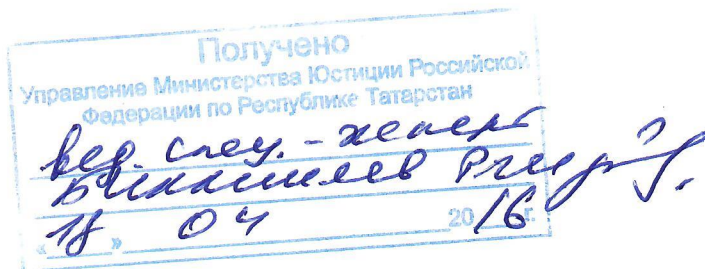 Получено
Управление Министерства Юстиции Российской
Федерации по Республике Татарстан
вед. спец. - эксперт
« 18 » 04 2016 г.